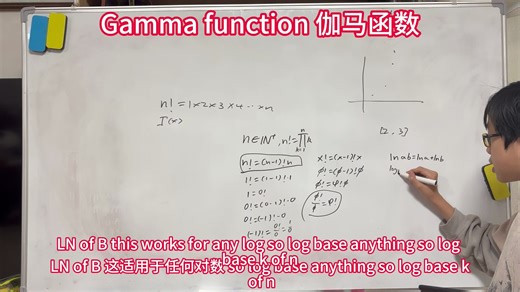 Gamma function 伽马函数
n! = 1×2×3×4⋯×n
Γ(x)
n∈ℕ⁺, n! = ∏ₖ₌₁ⁿ k
n! = (n-1)! n
1! = (1-1)! · 1
1 = 0!
0! = (0-1)! · 0
0! = (-1)! · 0
(-1)! = 0!/0 = 1/0
x! = (x-1)! x
[2, 3]
ln ab = ln a + ln b
log
LN of B this works for any log so log base anything so log
base k of n
LN of B 这适用于任何对数 so log base anything so log base k
of n